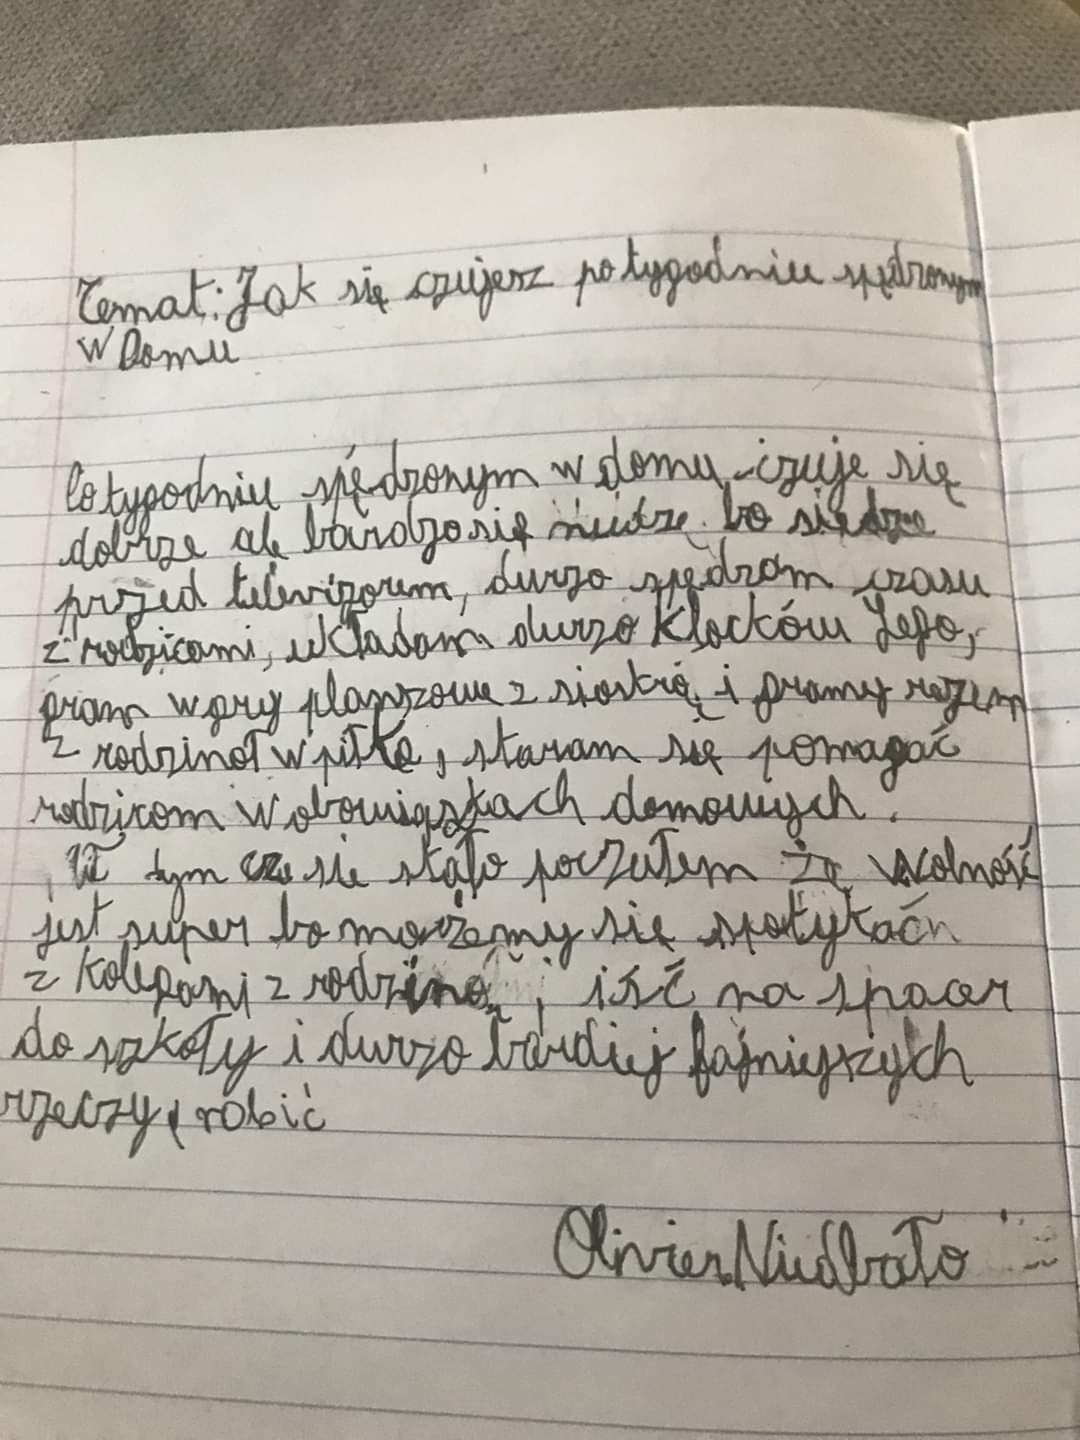 Temat: Jak się czujesz po tygodniu spędzonym
w Domu
Po tygodniu spędzonym w domu czuje się
dobrze ale bardzo się nudzę bo siedze
przed telewizorem, durzo spędzam czasu
z rodzicami, układam durzo klocków Lego,
gram w gry planszowe z siostrą i gramy razem
z rodzinoł w piłkę, staram się pomagać
rodzicom w obowiązkach domowych.
W tym czesie stało poczułem że wolność
jest super bo możemy się spotykać
z kolegami z rodziną, iść na spacer
do szkoły i durzo bardiej fajniejszych
rzeczy robić
Olivier Niedbało